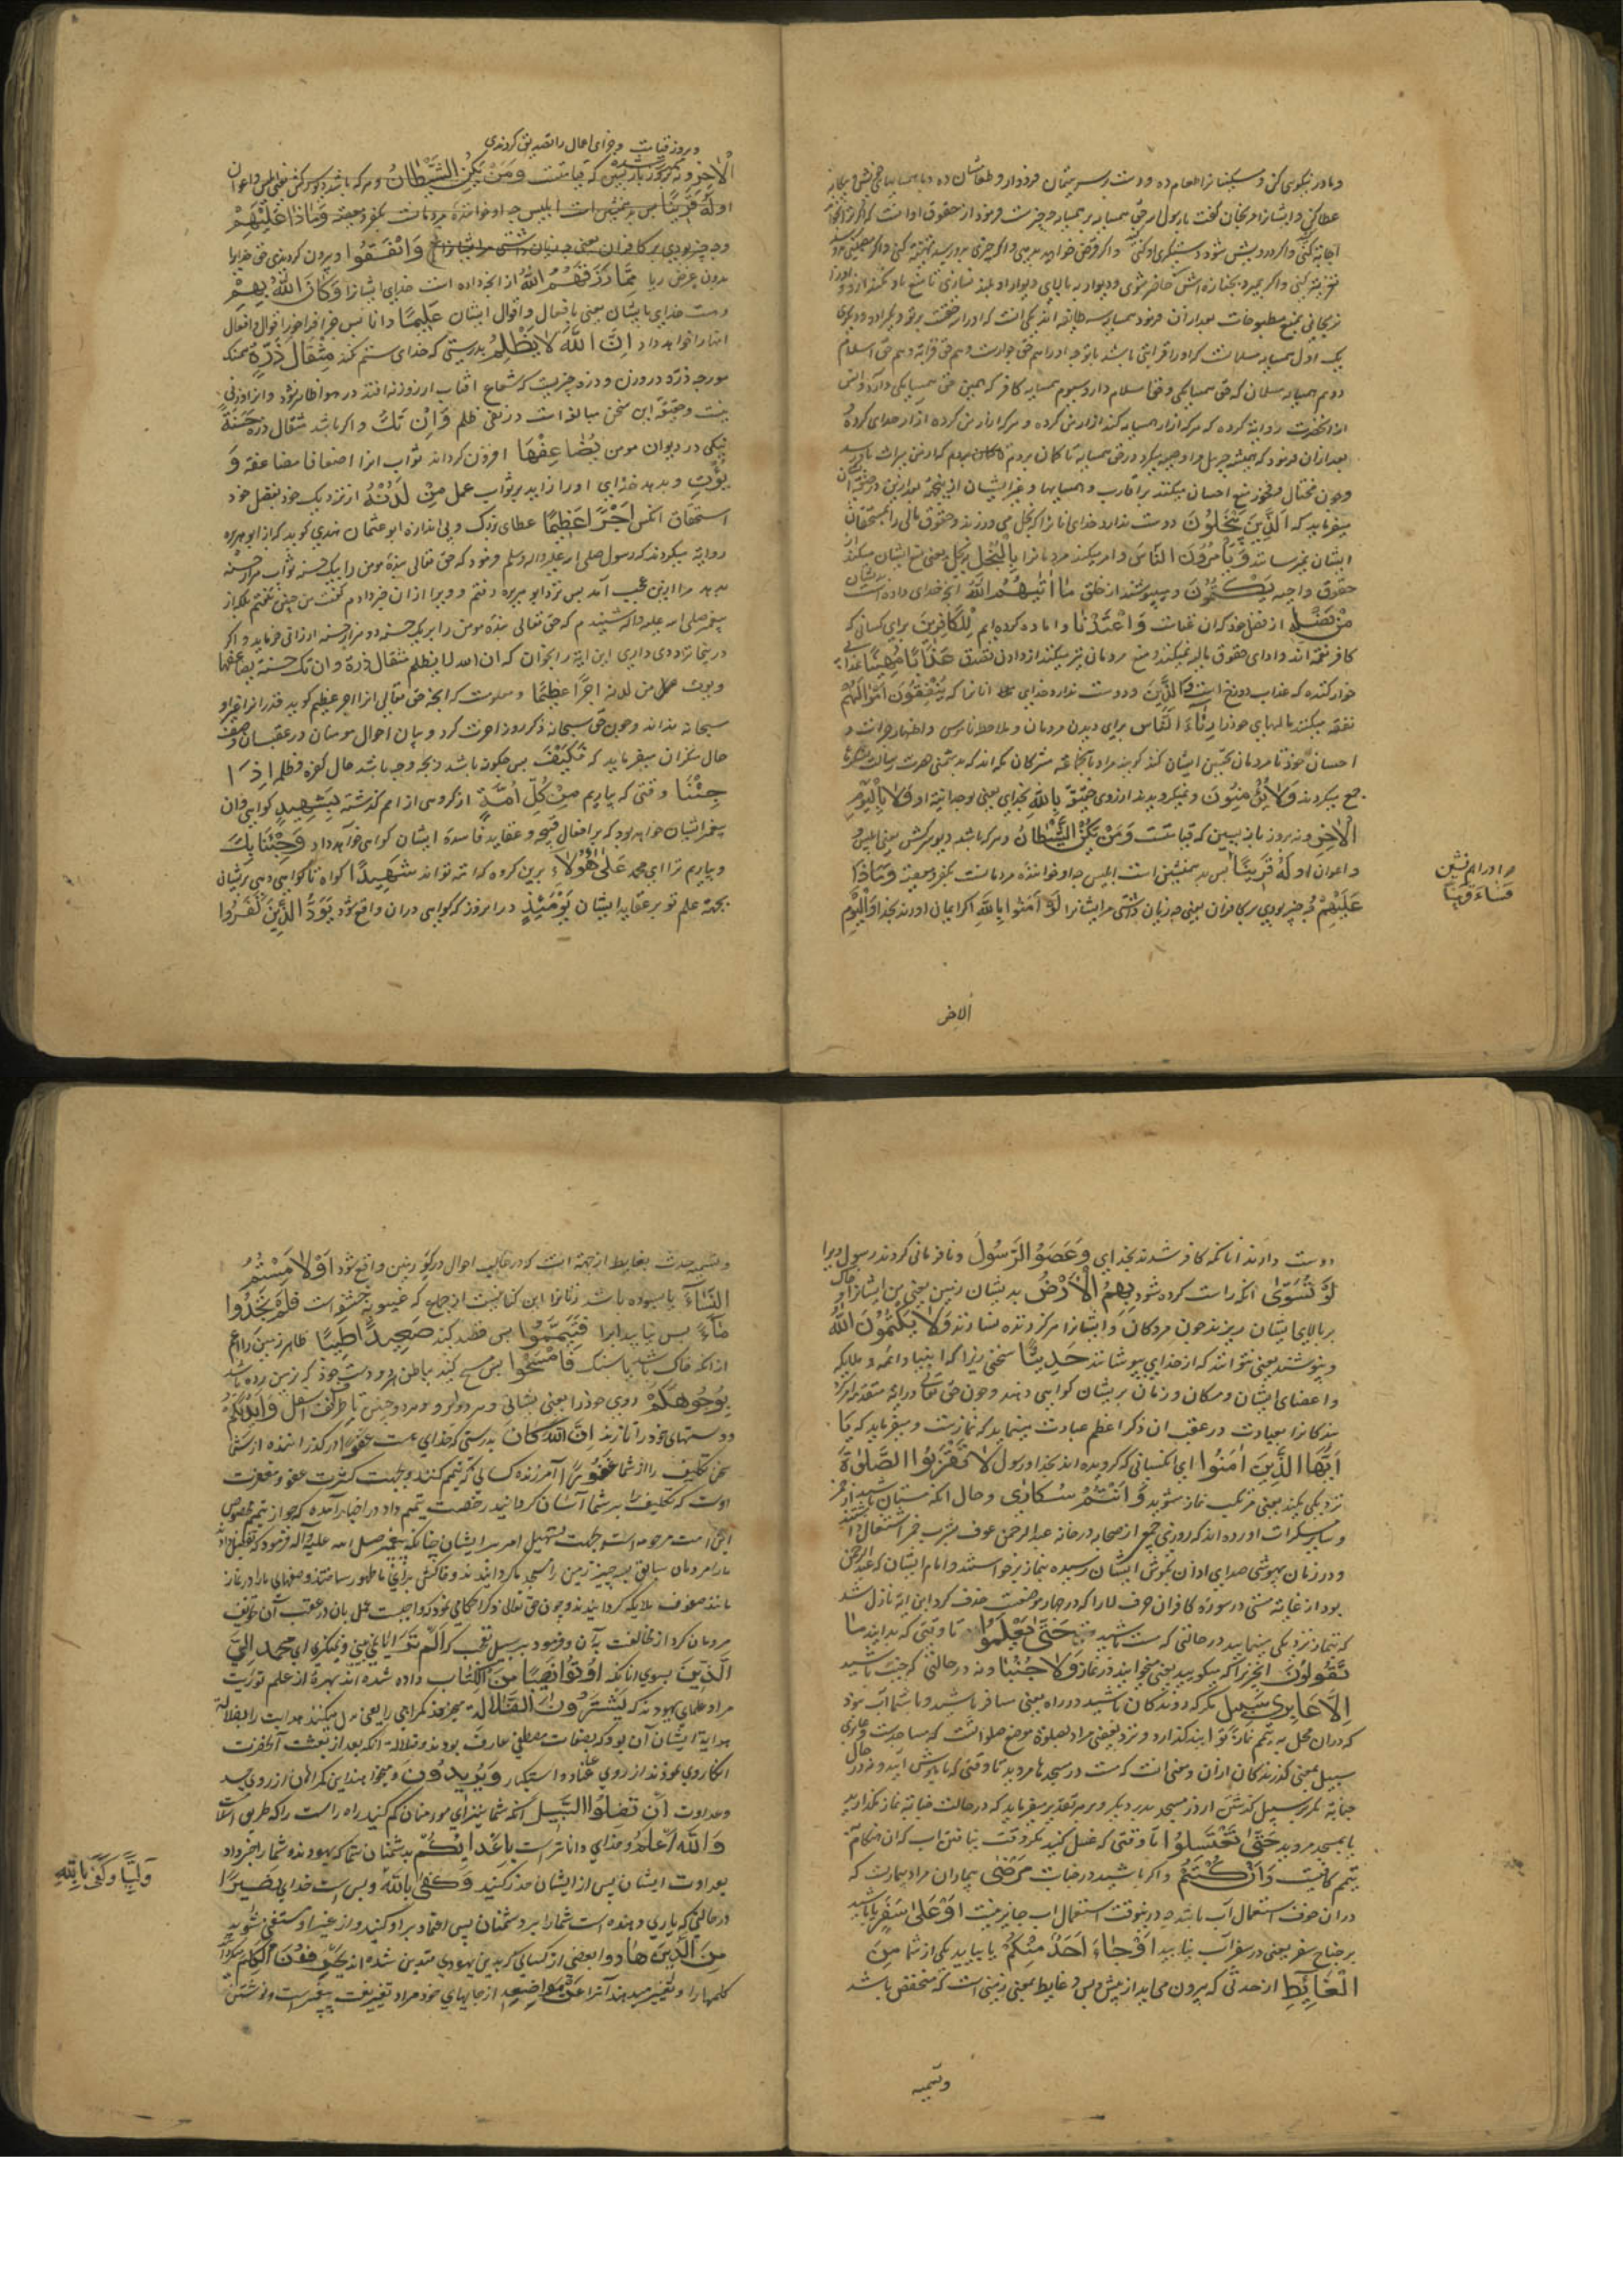 و مادر نیکوی کن و مسکینانرا طعام ده و دست بر سر یتیمان فرود ار و طعامشان ده و با همسایهای خویش و بیکانه
عطا کن و ایشانرا مرنجان گفت یا رسول الله حق همسایه بر همسایه چه چیزست فرمود از حقوق او انست که اگر ترا خواند
اجابة کنی و اگر درویش شود دستگیری او کنی و اگر قرض خواهد بدهی و اگر چیزی بدو رسد تهنیة کنی و اگر مصیبتی رسد
تعزیة کنی و اگر بمیرد بجنازه اش حاضر شوی و دیوار به بالای دیوار او بلند نسازی تا منع باد نکند از و او را
نرنجانی بمنع مطبوخات بعد از آن فرمود همسایه سه طایفه اند یکی انست که او را سه حقست و دیگر دو و دیگری
یک اول همسایه مسلمانست که او را قرابتی باشد با تو چه او را هم حق جوارست و هم حق قرابة و هم حق اسلام
دوم همسایه مسلمان که حق همسایکی و حق اسلام دارد سیوم همسایه کافر که همین حق همسایکی دارد و انس
از انحضرت روایة کرده که هر که ازار همسایه کند ازار من کرده و هر که ازار من کرده ازار خدای کرده
بعد ازان فرمود که همیشه جبریل مرا وصیة میکرد در حق همسایه تا کمان بردم که از من میراث باو رسد
و چون مختال و فخور منع احسان میکنند بر اقارب و همسایها و غیر ایشان از اینجهة بعد از این در صفة ایشان
میفرماید که اَلَّذِینَ یَبْخَلُونَ دوست ندارد خدای انانرا که بخل می ورزند و حقوق مالی را بمستحقان
ایشان نمیرسانند وَیَأْمُرُونَ النَّاسَ و امر میکنند مردمانرا بِالْبُخْلِ به بخل یعنی منع ایشان میکنند از
حقوق واجبه وَیَکْتُمُونَ و میپوشند از خلق مَا اٰتٰیهُمُ اللّٰهُ آنچه خدای داده است بدیشان
مِنْ فَضْلِهٖ از فضل خود که ان غناست وَاَعْتَدْنَا و اماده کرده ایم لِلْکَافِرِینَ برای کسانی که
کافر نعمة اند و ادای حقوق مالیه نمیکنند و منع مردمان نیز میکنند از دادن تصدق عَذَابًا مُهِینًا عذابی
خوار کننده که عذاب دوزخ است وَالَّذِینَ و دوست ندارد خدای انانرا که یُنْفِقُونَ اَمْوَالَهُمْ
نفقه میکنند مالهای خود را رِئَاءَ النَّاسِ برای دیدن مردمان و ملاحظه ناموس و اظهار خیرات و
احسان خود تا مردمان تحسین ایشان کنند
جمع میکردند وَلَا یُؤْمِنُونَ و نمیکروید از روی حقیقة بِاللّٰهِ بخدای یعنی بوحدانیة او وَلَا بِالْیَوْمِ
الْاٰخِرِ و نه بروز بازپسین که قیامتست وَمَنْ یَکُنِ الشَّیْطَانُ و هر که باشد دیو سرکش یعنی ابلیس
و اعوان او لَهُ قَرِینًا پس بد همنشین است ابلیس چه او خواننده مردمانست بکفر و معصیة وَمَاذَا
عَلَیْهِمْ و چه چیز بودی بر کافران یعنی چه زیان داشتی مر ایشانرا لَوْ اٰمَنُوا بِاللّٰهِ اگر ایمان اوردند بخدا وَالْیَوْمِ
مر او را همنشین
فَسَاءَ قَرِینًا
الاخر
و بروز قیامت و جزای اعمال را تصدیق کردندی
الْاٰخِرِ و نه بروز بازپسین که قیامتست وَمَنْ یَکُنِ الشَّیْطَانُ و هر که باشد دیو سرکش یعنی ابلیس و اعوان
او لَهُ قَرِینًا پس بد همنشین است ابلیس چه او خواننده مردمانست بکفر و معصیة وَمَاذَا عَلَیْهِمْ
و چه چیز بودی بر کافران یعنی چه زیان داشتی مر ایشانرا وَاَنْفَقُوا و بیرون کردندی حق خدایرا
بدون عرض ریا مِمَّا رَزَقَهُمُ اللّٰهُ از انچه داده است خدای ایشانرا وَکَانَ اللّٰهُ بِهِمْ
و هست خدای بایشان یعنی بافعال و اقوال ایشان عَلِیمًا دانا پس جزا فراخور اقوال و افعال
انها را خواهد داد اِنَّ اللّٰهَ لَا یَظْلِمُ بدرستی که خدای ستم نکند مِثْقَالَ ذَرَّةٍ همسنگ
مورچه ذره در وزن و ذره چیزیست که شعاع افتاب از روزنه افتد در هوا ظاهر شود و انرا وزنی
نیست و حقیقة این سخن مبالغه است در نفی ظلم وَاِنْ تَکُ و اگر باشد مثقال ذره حَسَنَةً
نیکی در دیوان مومن یُضَاعِفْهَا افزون کرداند ثواب انرا اضعافا مضاعفة وَ
یُؤْتِ و بدهد خدای او را زاید بر ثواب عمل مِنْ لَدُنْهُ از نزدیک خود بفضل خود
استحقاق انکس اَجْرًا عَظِیمًا عطای بزرک و بی اندازه ابو عثمان نهدی کوید که از ابو هریره
روایة میکردند که رسول صلی الله علیه و اله و سلم فرمود که حق تعالی بندهٔ مومن را بیک حسنه ثواب هزار حسنه
بدهد مرا ازین عجب آمد پس نزد ابو هریره رفتم و ویرا از ان خبر دادم گفت من چنین نگفتم بلکه از
پیغمبر صلی الله علیه و اله شنیدم که حق تعالی بندهٔ مومن را بر یک حسنه دو هزار حسنه ارزانی فرماید و اگر
درینجا تردد داری این ایة را بخوان که ان الله لا یظلم مثقال ذرة وان تک حسنة یضاعفها
ویؤت من لدنه اجرًا عظیمًا و معلومست که انچه حق تعالی انرا اجر عظیم کوید قدر انرا غیر او
سبحانه نداند و چون حق سبحانه ذکر روز اخرت کرد و بیان احوال مومنان در عقب ان وصف
حال منکران میفرماید که فَکَیْفَ پس چکونه باشد و بچه وجه باشد حال کفره و ظلمه اِذَا
جِئْنَا وقتی که بیاریم مِنْ کُلِّ اُمَّةٍ از کروهی از امم کذشته بِشَهِیدٍ کواهی و ان
پیغمبر ایشان خواهد بود که بر افعال قبیحه و عقاید فاسدة ایشان کواهی خواهد داد وَجِئْنَا بِکَ
و بیاریم ترا ای محمد عَلٰی هٰؤُلَاءِ برین کروه که امة تواند شَهِیدًا کواه تا کواهی دهی بر ایشان
بجهة علم تو بر عقاید ایشان یَوْمَئِذٍ در انروز که کواهی دران واقع شود یَوَدُّ الَّذِینَ کَفَرُوا
دوست دارند انانکه کافر شدند بخدای وَعَصَوُا الرَّسُولَ و نافرمانی کردند رسول ویرا
لَوْ تُسَوّٰی انکه راست کرده شود بِهِمُ الْاَرْضُ بدیشان زمین یعنی زمین ایشانرا و خاک
بر بالای ایشان ریزند چون مردکان و ایشانرا هرکز زنده نسازند وَلَا یَکْتُمُونَ اللّٰهَ
و نپوشند یعنی نتوانند که از خدای بپوشانند حَدِیثًا سخنی زیرا که انبیا و ائمه و ملایکه
و اعضای ایشان و مکان و زمان بریشان کواهی دهند و چون حق تعالی در ایة متقدم امر کرد
بندکانرا بعبادت در عقب ان ذکر اعظم عبادت مینماید که نمازست و میفرماید که یَا
اَیُّهَا الَّذِینَ اٰمَنُوا ای انکسانی که کرویده اید بخدا و رسول لَا تَقْرَبُوا الصَّلٰوةَ
نزدیکی مکنید یعنی مرتکب نماز مشوید وَاَنْتُمْ سُکَارٰی و حال انکه مستان باشید از خمر
و سایر مسکرات اورده اند که روزی جمعی از صحابه در خانه عبدالرحمن عوف بشرب خمر اشتغال داشتند
و در زمان بیهوشی صدای اذان بکوش ایشان رسیده بنماز برخواستند و امام ایشان که عبدالرحمن
بود از غایة مستی در سوره کافران حرف لا را که در چهار موضعست حذف کرد این ایة نازل شد
که بنماز نزدیکی منمایید در حالتی که مست باشید حَتّٰی تَعْلَمُوا تا وقتی که بدانید مَا
تَقُولُونَ انچیز را که میکویید یعنی میخوانید در نماز وَلَا جُنُبًا و نه در حالتی که جنب باشید
اِلَّا عَابِرِی سَبِیلٍ مکر که روندکان باشید در راه یعنی مسافر باشید و با شما آب نبود
که دران محل به تیمم نماز توانید کذارد و نزد بعضی مراد بصلوة موضع صلوتست که مساجدست و عابری
سبیل بمعنی کذرندکان ازان و معنی انست که مست در مسجد مروید تا وقتی که باهوش آیید و نه در حال
جنابة مکر بر سبیل کذشتن از در مسجد بدر دیکر و بر هر تقدیر میفرماید که در حالت جنابة نماز مکذارید
یا بمسجد مروید حَتّٰی تَغْتَسِلُوا تا وقتی که غسل کنید مکر وقت نیافتن اب که ان هنکام
تیمم کافیست وَاِنْ کُنْتُمْ و اگر باشید در جنابت مَرْضٰی بیماران مراد بیماریست که
دران خوف استعمال آب باشد چه درینوقت استعمال اب جایز نیست اَوْ عَلٰی سَفَرٍ یا باشید
بر جناح سفر یعنی در سفر آب نیابید اَوْ جَاءَ اَحَدٌ مِنْکُمْ یا بیاید یکی از شما مِنَ
الْغَائِطِ از حدثی که بیرون می اید از پیش و پس و غایط بمعنی زمینی است که منخفض باشد
وتسمیه
و تسمیه حدث بغایط ازجهة انست که در غالب احوال در کو زمین واقع شود اَوْ لَامَسْتُمُ
النِّسَاءَ یا بسوده باشید زنانرا این کنایتست از جماع که غیبوبة حشفه است فَلَمْ تَجِدُوا
مَاءً پس نیابید ابرا فَتَیَمَّمُوا پس قصد کنید صَعِیدًا طَیِّبًا ظاهر زمین را اعم
از انکه خاک باشد یا سنک فَامْسَحُوا پس مسح کنید بباطن هر دو دست خود که بر زمین زده باشید
بِوُجُوهِکُمْ روی خود را یعنی پیشانی و هر دو ابرو و هر دو جبین تا طرف اسفل وَاَیْدِیکُمْ
و دستهای خود را تا زند اِنَّ اللّٰهَ کَانَ بدرستی که خدای هست عَفُوًّا در کذراننده از شما
تکلیف را از شما غَفُورًا آمرزنده کسانی که تیمم کنند و بجهت کثرت عفو و مغفرت
اوست که تکلیف را بر شما آسان کردانید و رخصت تیمم داد در اخبار آمده که جواز تیمم مخصوص
این امت مرحومه است بجهت تسهیل امر بر ایشان چنانکه پیغمبر صلی الله علیه و آله فرمود که تفضیل داده اند
ما را بر مردمان سابق بسه چیز زمین را مسجد ما کردانیدند و خاکش برای ما طهور ساختند و صفهای ما را در نماز
مانند صفوف ملایکه کردانیدند و چون حق تعالی ذکر احکامی نمود که واجبست عمل بان در عقب آن تخویف
مردمان کرد از مخالفت به آن و فرمود بر سبیل تعجب که اَلَمْ تَرَ ایا نمی بینی و نمینکری ای محمد اِلَی
الَّذِینَ بسوی انانکه اُوتُوا نَصِیبًا مِنَ الْکِتَابِ داده شده اند بهرهٔ از علم توریت
مراد علمای یهودند که یَشْتَرُونَ الضَّلَالَةَ میخرند کمراهی را یعنی بدل میکنند هدایت را بضلالة
هدایة ایشان آن بود که بصفات مصطفی عارف بودند و ضلالة انکه بعد از بعثت آنحضرت
انکار وی نمودند از روی عناد و استکبار وَیُرِیدُونَ و میخواهند این کمراهان از روی حسد
و عداوت اَنْ تَضِلُّوا السَّبِیلَ انکه شما نیز ای مومنان کم کنید راه راست را که طریق اسلام
وَاللّٰهُ اَعْلَمُ و خدای داناترست بِاَعْدَائِکُمْ بدشمنان شما که یهودند و شما را خبر داد
بعداوت ایشان پس از ایشان حذر کنید وَکَفٰی بِاللّٰهِ و بس است خدای نَصِیرًا
در حالتی که یاری دهنده است شما را بر دشمنان پس اعتماد بر او کنید و از غیر او مستغنی شوید
مِنَ الَّذِینَ هَادُوا بعضی از کسانی که بدین یهودی متدین شده اند یُحَرِّفُونَ الْکَلِمَ میکردانند
کلمها را و تغییر میدهند آنرا عَنْ مَوَاضِعِهٖ از جایهای خود مراد تغییر نعت پیغمبرست و نوشتن
وَلِیًّا وَکَفٰی بِاللّٰهِ